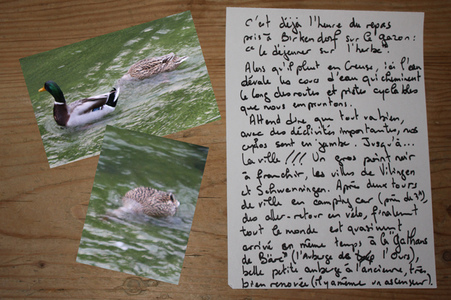 C'est déjà l'heure du repas
pris à Birkendorf sur le gazon :
"le déjeuner sur l'herbe".
Alors qu'il pleut en Creuse, ici l'on
dévale les cours d'eau qui cheminent
le long des routes et pistes cyclables
que nous empruntons.
Autant dire que tout va bien,
avec des déclivités importantes, nos
cyclos sont en jambe. Jusqu'à...
la ville !!! Un gros point noir
à franchir, les villes de Vilingen
et Schwenningen. Après deux tours
de ville en camping car (près de 3h),
des aller-retour en vélo, finalement
tout le monde est quasiment
arrivé en même temps à la "Gasthaus
de Bäre" (l'auberge de l'ours),
belle petite auberge à l'ancienne, très
bien renovée (il y a même un ascenseur).